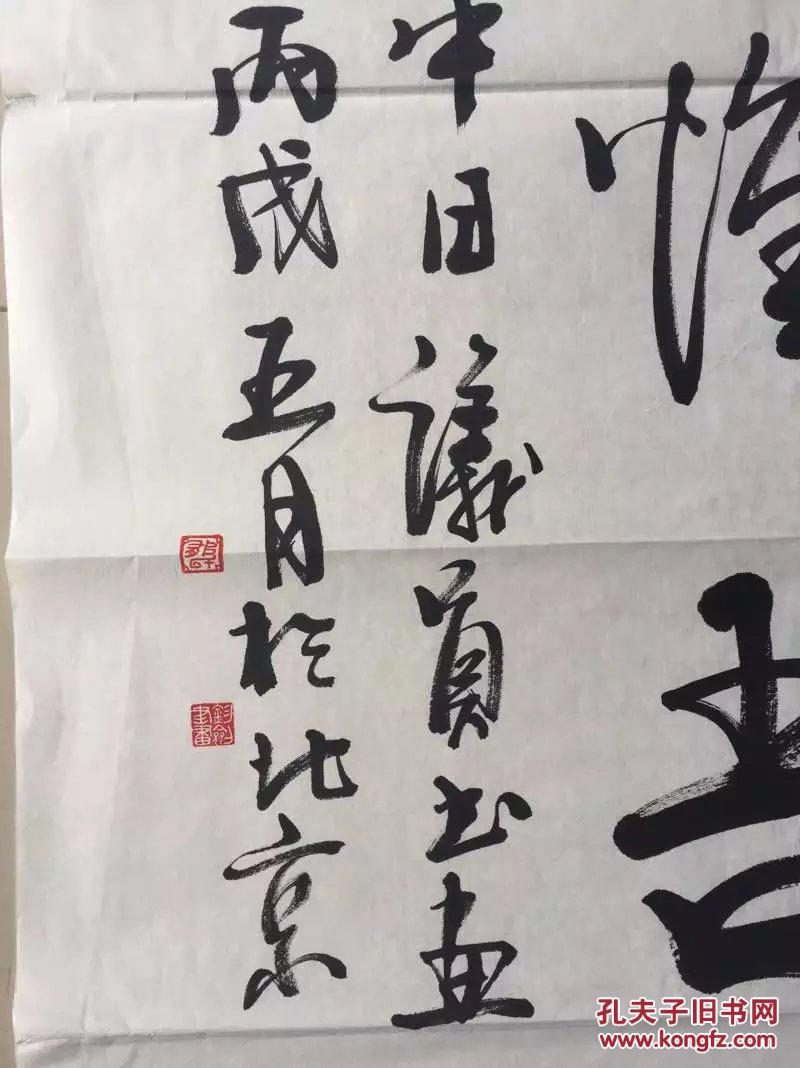 惟吾
中日議員书画
丙戌五月於北京
孔夫子旧书网
www.kongfz.com